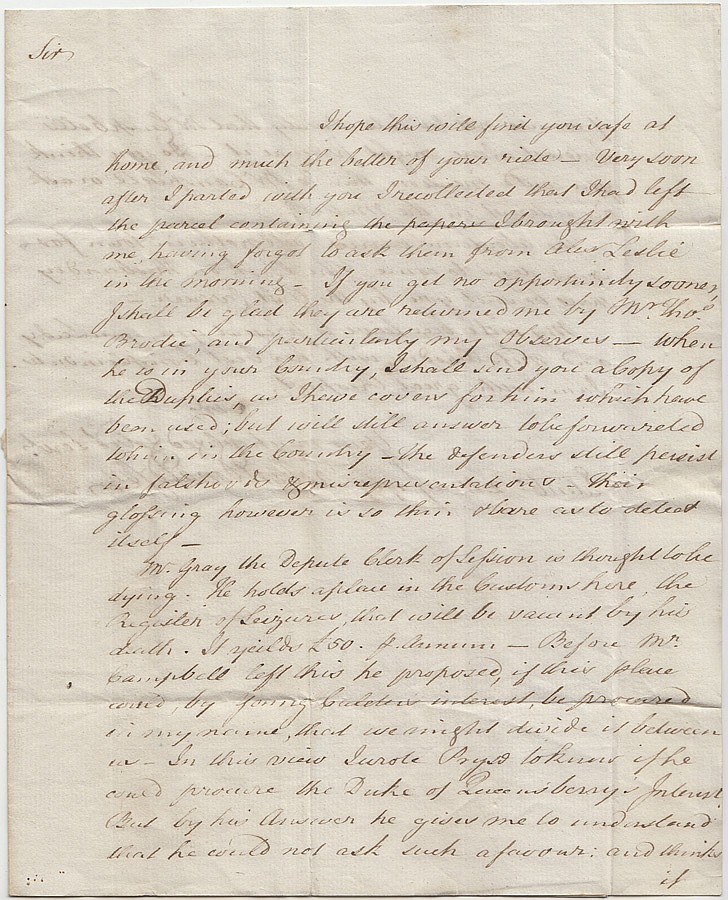 Sir
I hope this will find you safe at
home, and much the better of your ride – Very soon
after I parted with you I recollected that I had left
the parcel containing the papers I brought with
me, having forgot to ask them from Alexr Leslie
in the morning – If you get no opportunity sooner,
I shall be glad they are returned me by Mr. Thos
Brodie, and particularly my Observes – When
he is in your Country, I shall send you a Copy of
the Duplies, as I have covers for him which have
been used; but will still answer to be forwarded
to him in the Country – the defenders still persist
in falshoods & misrepresentations – Their
glossing however is so thin & bare as to detect
itself –
Mr. Gray the Depute Clerk of Session is thought to be
dying. He holds a place in the Customs here, the
Register of Seizures, that will be vacant by his
death. It yeilds £50. Annum – Before Mr.
Campbell left this he proposed, if this place
could, by Calder's interest, be procured
in my name, that we might divide it between
us – In this view I wrote to know if he
could procure the Duke of Queensberrys Interest
But by his Answer he gives me to understand
that he could not ask such a favour: and thinks
if